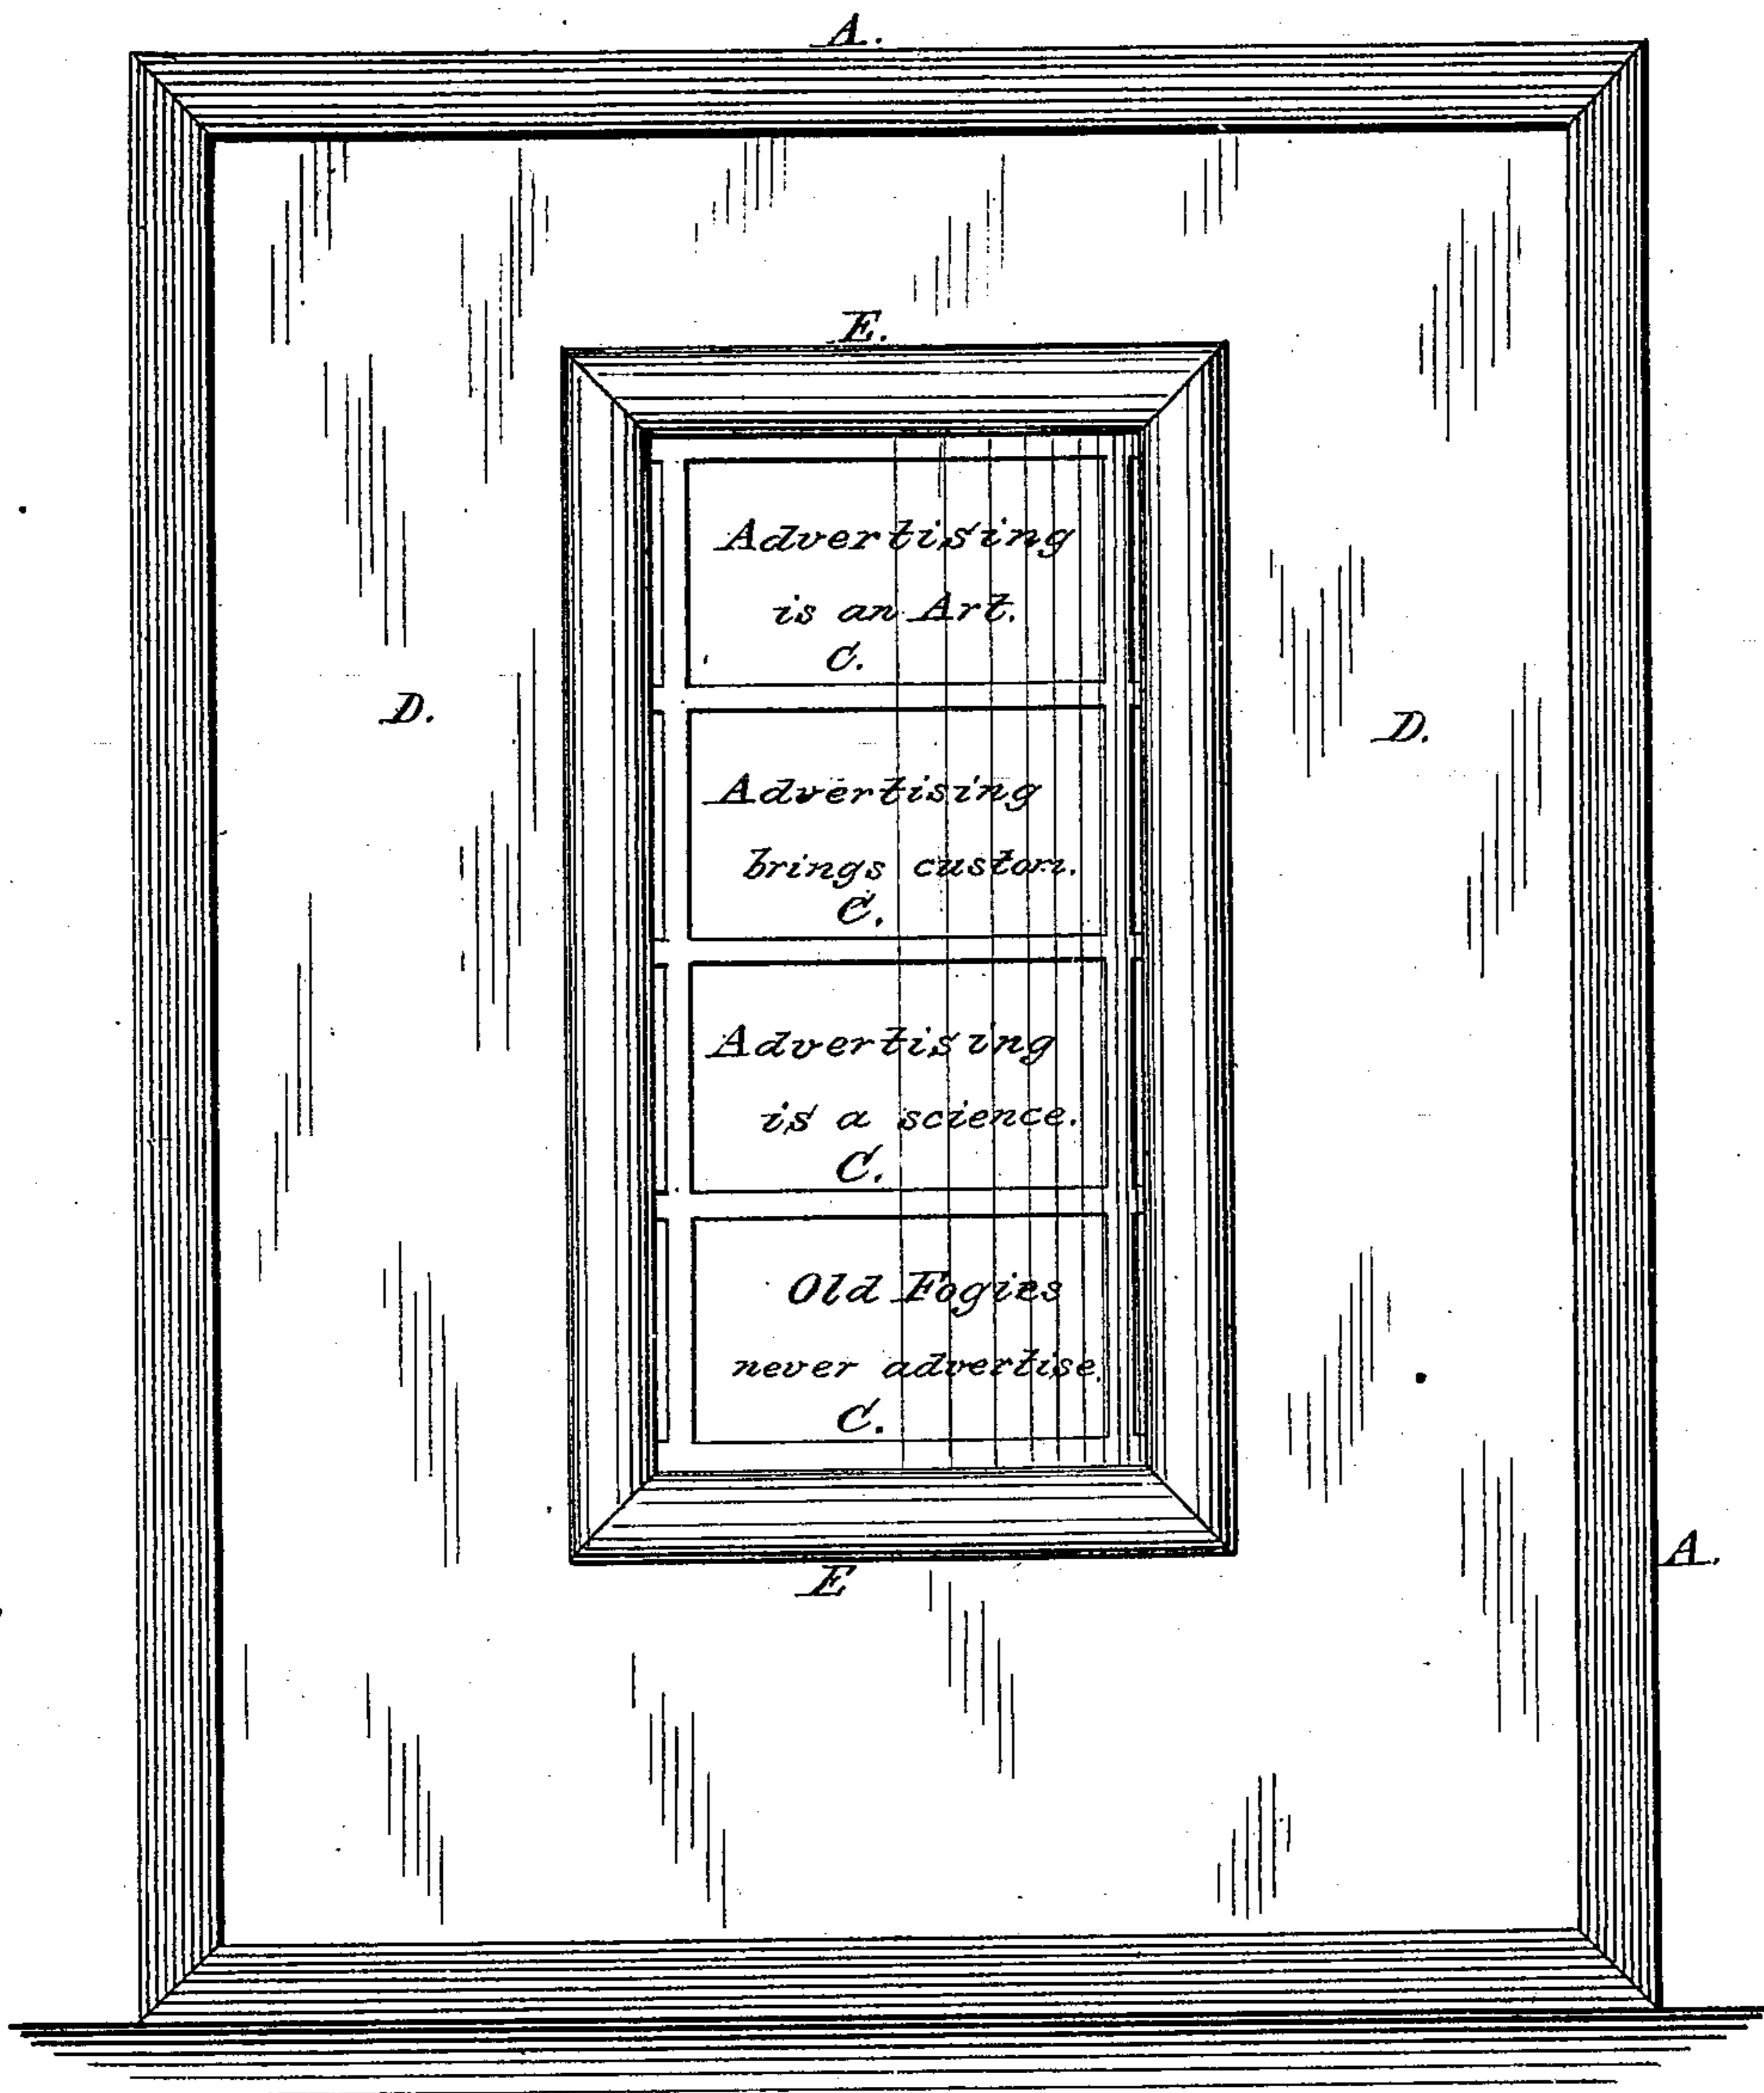 A.
E.
Advertising
is an Art.
C.
D.
D.
Advertising
brings custom.
C.
Advertising
is a science.
C.
Old Fogies
never advertise.
C.
A.
E